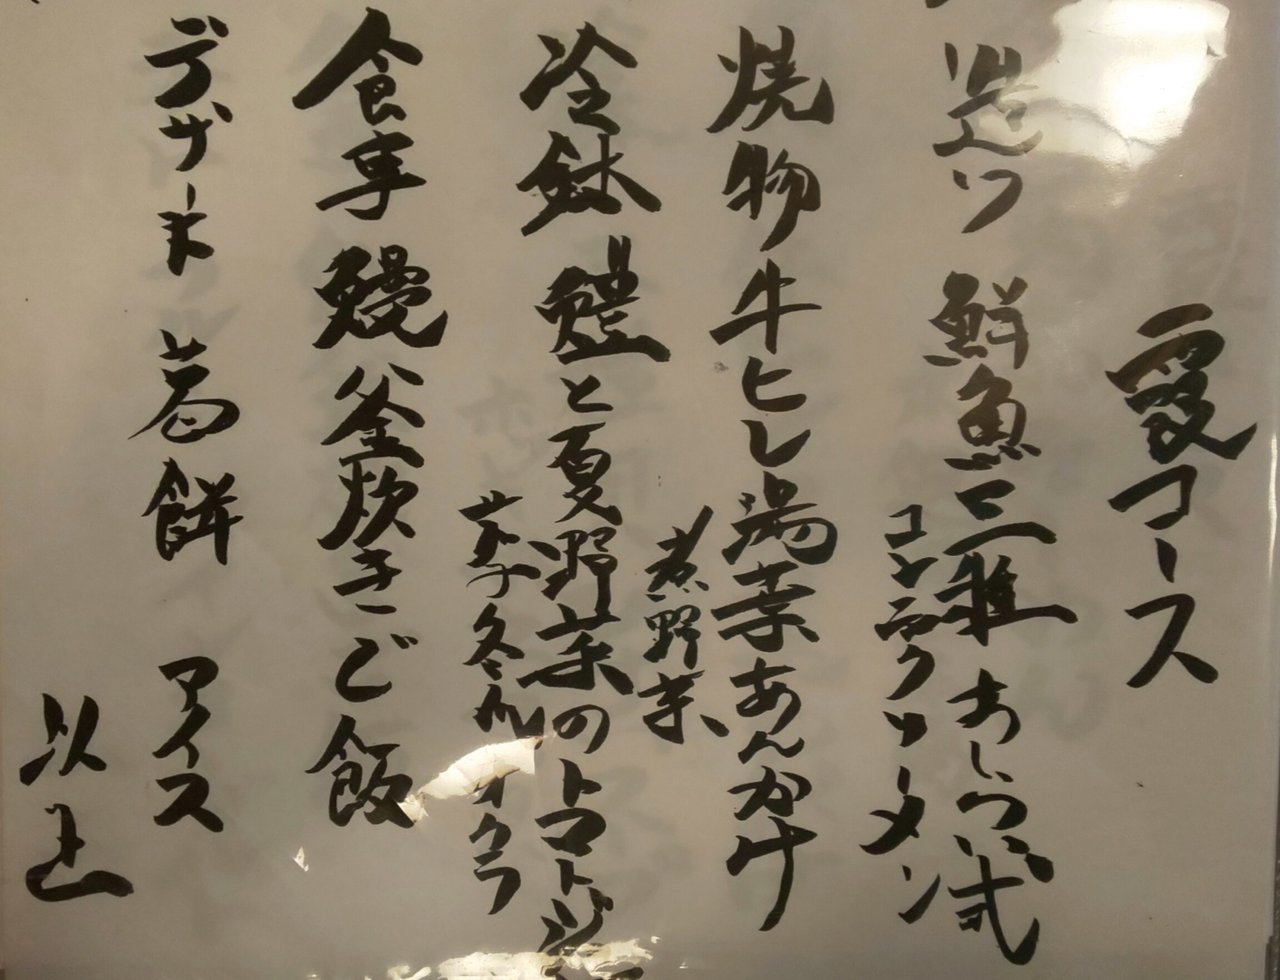 霞コース
造り 鮮魚三種 あしらい式
コンニャクソーメン
焼物 牛ヒレ湯葉あんかけ
煮野菜
冷鉢 鱧と夏野菜のトマトジ
茄子 冬瓜 オクラ
食事 鰻釜炊きご飯
デザート 葛餅 アイス
以上